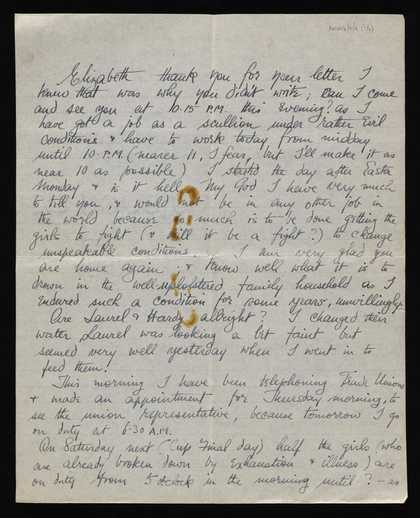 Elizabeth thank you for your letter I
knew that was why you didn't write; can I come
and see you at 10.15 P.M. this evening? as I
have got a job as a scullion under rather evil
conditions & have to work today from midday
until 10. P.M. (nearer 11, I fear, but I'll make it as
near 10 as possible) I started the day after Easter
Monday & is it hell. My God I have very much
to tell you, & would not be in any other job in
the world because so much is to be done getting the
girls to fight (& will it be a fight?) to change
unspeakable conditions. I am very glad you
are home again, & know well what it is to
drown in the well-upholstered family household as I
endured such a condition for some years, unwillingly.
Are Laurel & Hardy alright? I changed their
water Laurel was looking a bit faint but
seemed very well yesterday when I went in to
feed them!
This morning I have been telephoning Trade Unions
& made an appointment for Thursday morning, to
see the union representative, because tomorrow I go
on duty at 6.30 A.M.
On Saturday next (Cup Final day) half the girls (who
are already broken down by exhaustion & illness) are
on duty from 5 o'clock in the morning until? - as